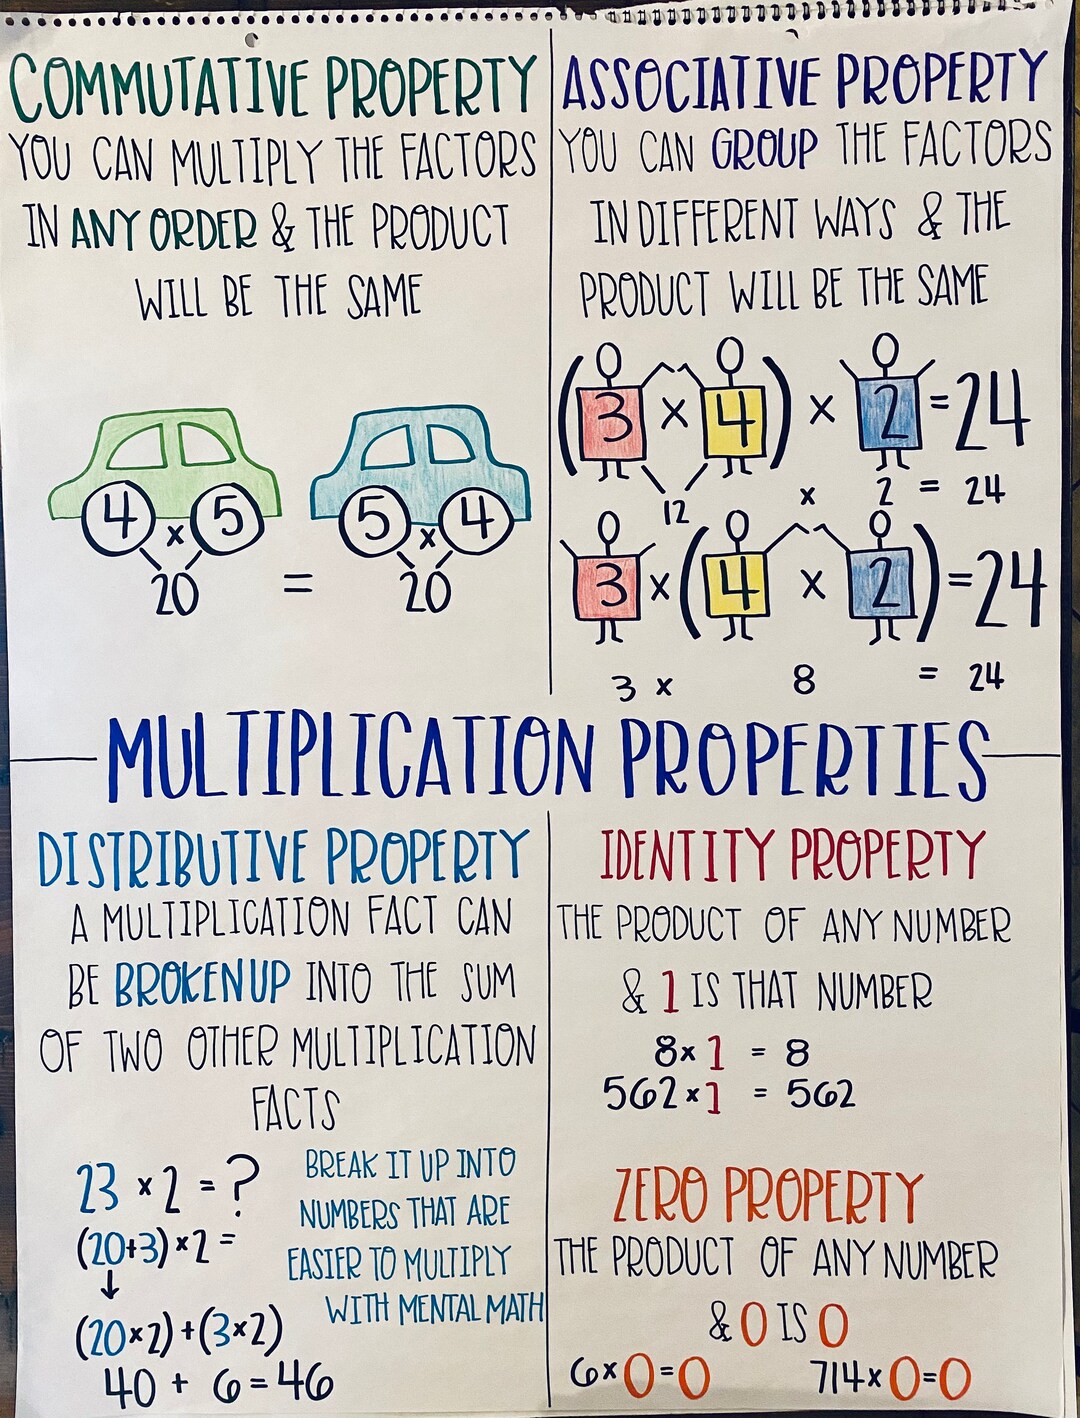 COMMUTATIVE PROPERTY
YOU CAN MULTIPLY THE FACTORS
IN ANY ORDER & THE PRODUCT
WILL BE THE SAME
4 x 5
20
=
5 x 4
20
ASSOCIATIVE PROPERTY
YOU CAN GROUP THE FACTORS
IN DIFFERENT WAYS & THE
PRODUCT WILL BE THE SAME
(3 x 4) x 2 = 24
12 x 2 = 24
3 x (4 x 2) = 24
3 x 8 = 24
MULTIPLICATION PROPERTIES
DISTRIBUTIVE PROPERTY
A MULTIPLICATION FACT CAN
BE BROKEN UP INTO THE SUM
OF TWO OTHER MULTIPLICATION
FACTS
23 x 2 = ?
(20+3) x 2 =
↓
(20x2) + (3x2)
40 + 6 = 46
BREAK IT UP INTO
NUMBERS THAT ARE
EASIER TO MULTIPLY
WITH MENTAL MATH
IDENTITY PROPERTY
THE PRODUCT OF ANY NUMBER
& 1 IS THAT NUMBER
8 x 1 = 8
562 x 1 = 562
ZERO PROPERTY
THE PRODUCT OF ANY NUMBER
& 0 IS 0
6 x 0 = 0
714 x 0 = 0